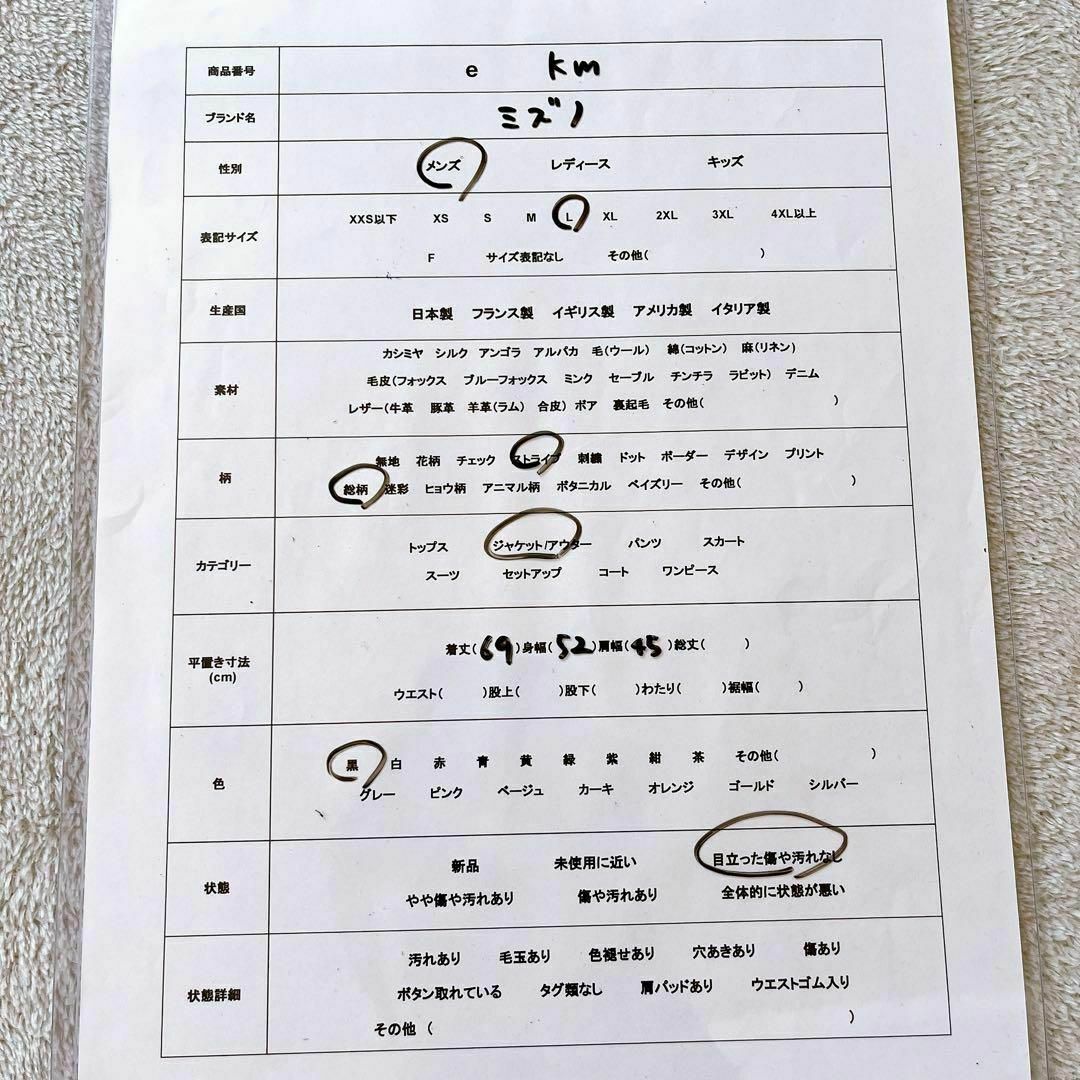 商品番号 e km
ブランド名 ミズノ
性別 メンズ レディース キッズ
XXS以下 XS S M L XL 2XL 3XL 4XL以上
表記サイズ
F サイズ表記なし その他( )
生産国 日本製 フランス製 イギリス製 アメリカ製 イタリア製
カシミヤ シルク アンゴラ アルパカ 毛(ウール) 綿(コットン) 麻(リネン)
素材 毛皮(フォックス ブルーフォックス ミンク セーブル チンチラ ラビット) デニム
レザー(牛革 豚革 羊革(ラム) 合皮) ボア 裏起毛 その他( )
無地 花柄 チェック ストライプ 刺繍 ドット ボーダー デザイン プリント
柄
総柄 迷彩 ヒョウ柄 アニマル柄 ボタニカル ペイズリー その他( )
トップス ジャケット/アウター パンツ スカート
カテゴリー
スーツ セットアップ コート ワンピース
着丈(69)身幅(52)肩幅(45)総丈( )
平置き寸法
(cm)
ウエスト( )股上( )股下( )わたり( )裾幅( )
黒 白 赤 青 黄 緑 紫 紺 茶 その他( )
色
グレー ピンク ベージュ カーキ オレンジ ゴールド シルバー
新品 未使用に近い 目立った傷や汚れなし
状態
やや傷や汚れあり 傷や汚れあり 全体的に状態が悪い
汚れあり 毛玉あり 色褪せあり 穴あきあり 傷あり
状態詳細 ボタン取れている タグ類なし 肩パッドあり ウエストゴム入り
その他 ( )